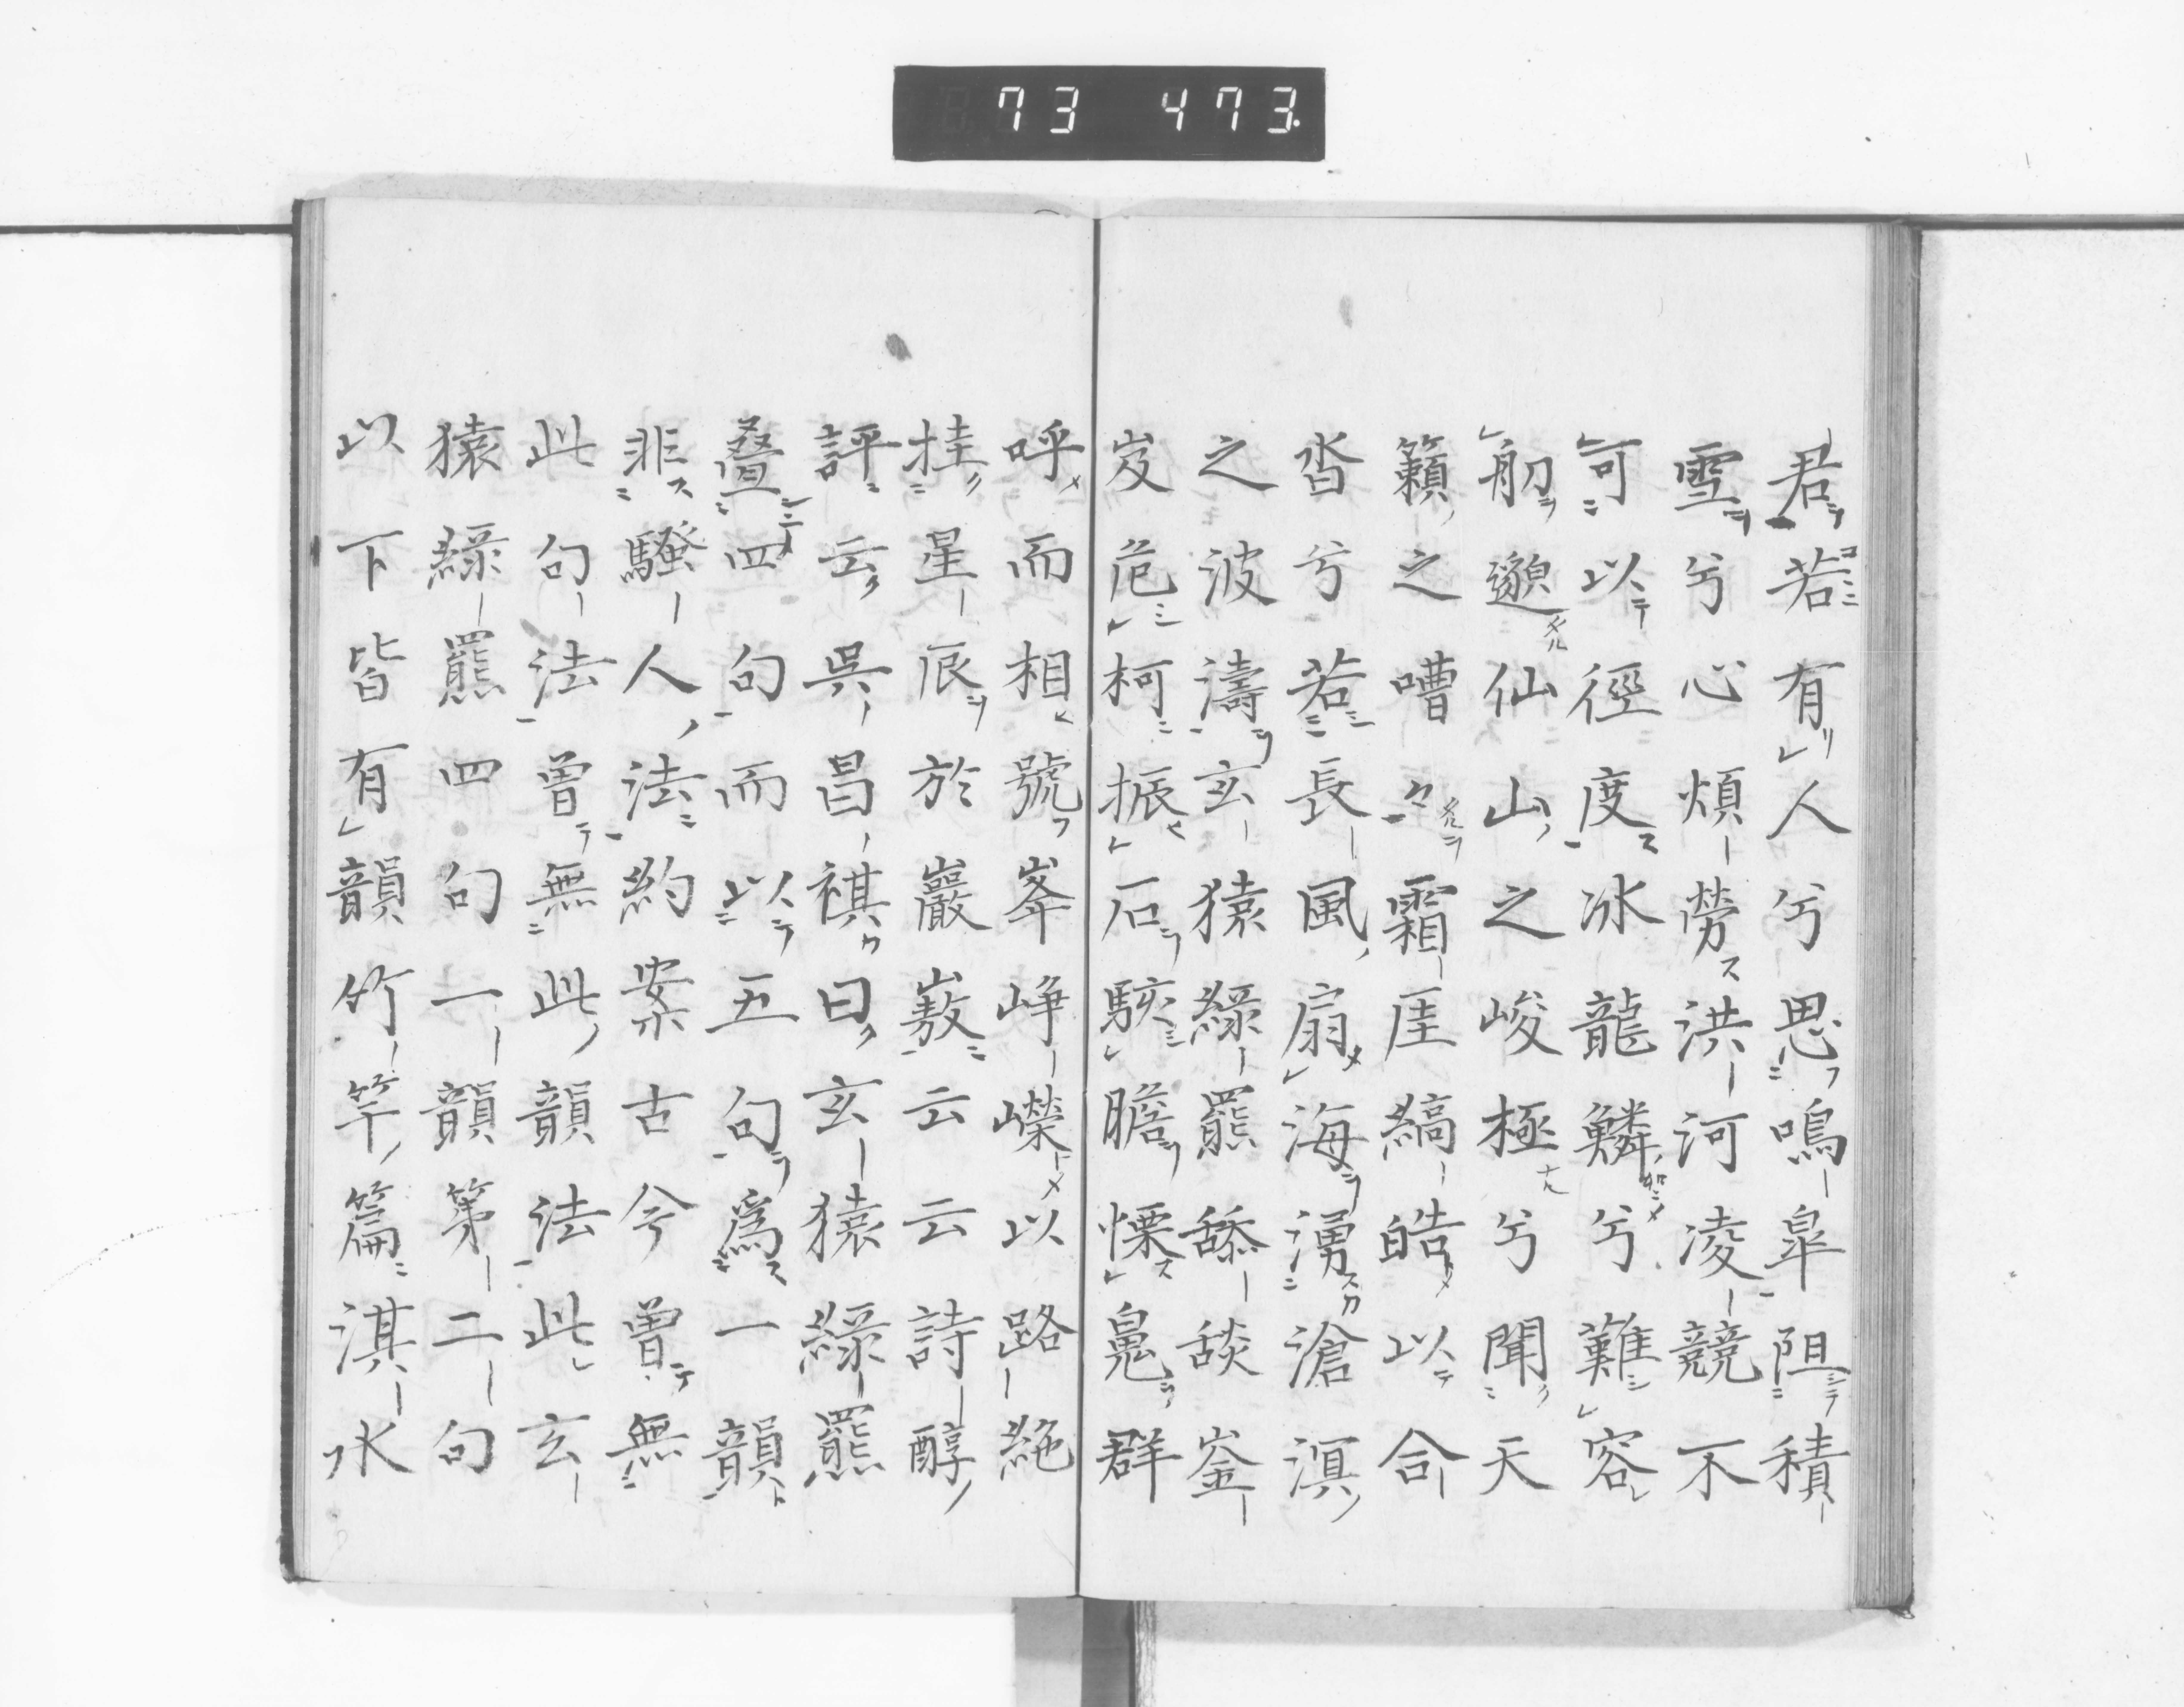 73 473.
君若有人兮思鳴皐阻積
雪兮心煩勞洪河凌競不
可以徑度冰龍鱗兮難容
舠邈仙山之峻極兮聞天
籟之嘈々霜厓縞皓以合
沓兮若長風扇海湧滄溟
之波濤玄猿綠羆舔舕崟
岌危柯振石駭膽慄魄群
呼而相號峯崢嶸以路絶
挂星辰於巖嶅云云詩醇
評云呉昌祺曰玄猿綠羆
疊四句而以五句爲一韻
非騷人法約案古今曽無
此句法曽無此韻法此玄
猿綠羆四句一韻第二句
以下皆有韻竹竿篇淇水